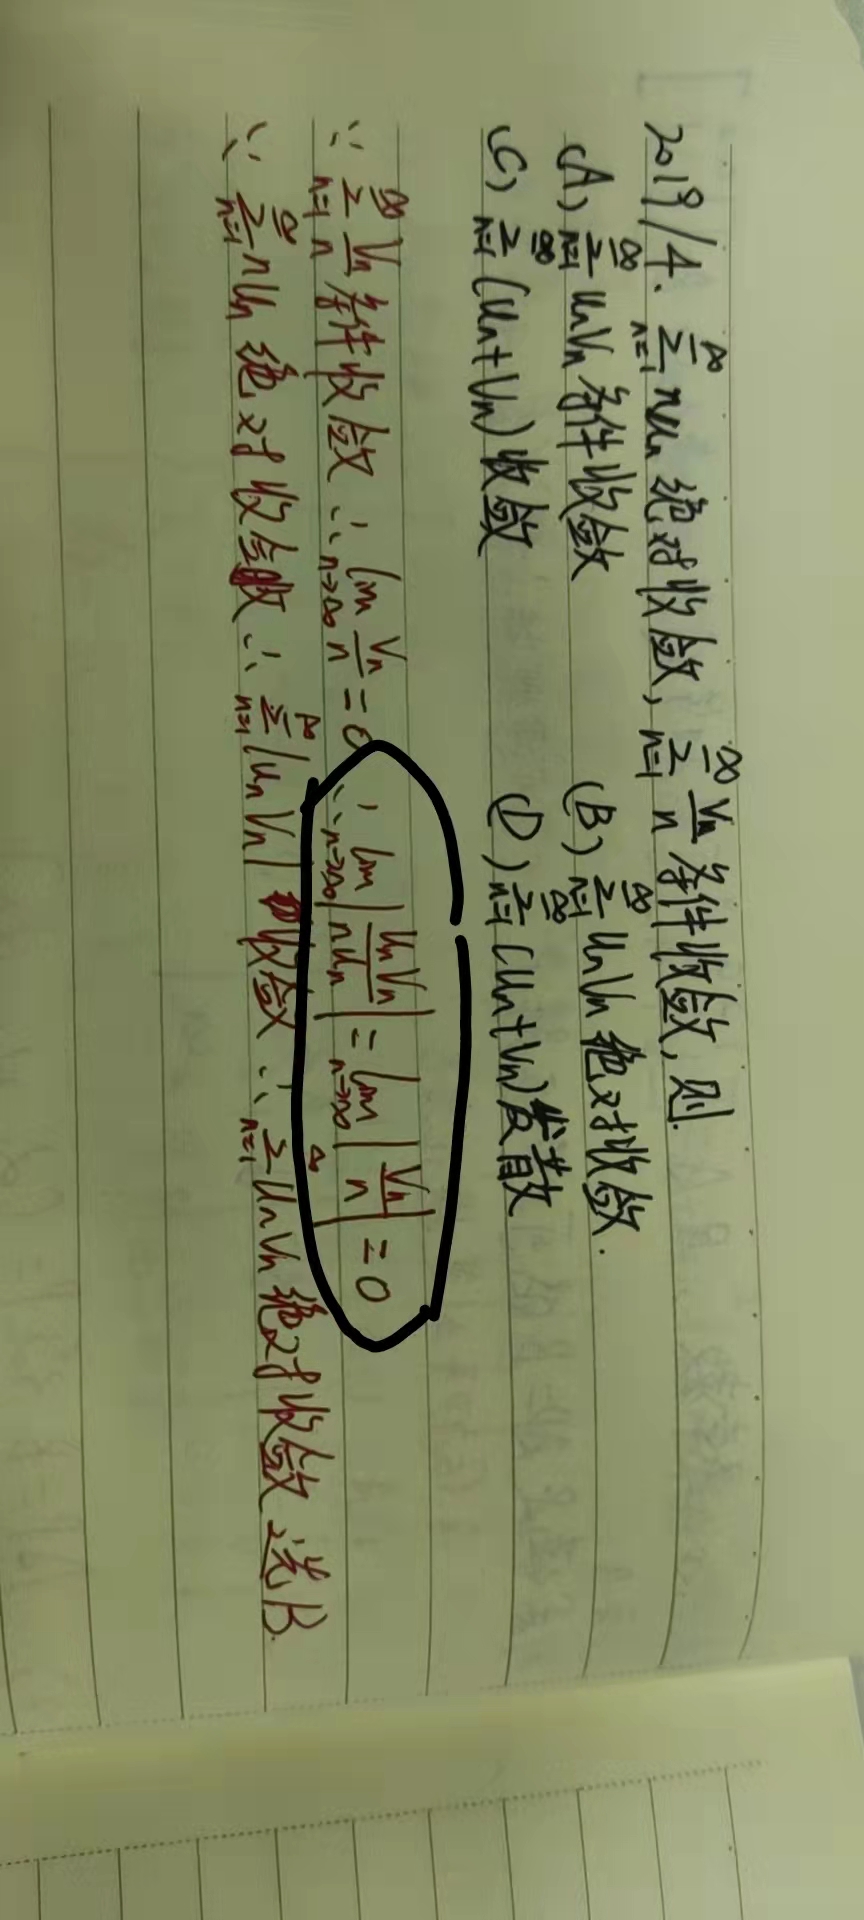 2019/4. ∑_{n=1}^{∞} nuₙ 绝对收敛, ∑_{n=1}^{∞} Vₙ/n 条件收敛, 则.
(A) ∑_{n=1}^{∞} uₙVₙ 条件收敛 (B) ∑_{n=1}^{∞} uₙVₙ 绝对收敛.
(C) ∑_{n=1}^{∞} (uₙ+Vₙ) 收敛 (D) ∑_{n=1}^{∞} (uₙ+Vₙ) 发散
∵ ∑_{n=1}^{∞} Vₙ/n 条件收敛 ∴ lim_{n→∞} Vₙ/n = 0 ∴ lim_{n→∞} |uₙVₙ/nuₙ| = lim_{n→∞} |Vₙ/n| = 0
∵ ∑_{n=1}^{∞} nuₙ 绝对收敛 ∴ ∑_{n=1}^{∞} |uₙVₙ| 收敛 ∴ ∑_{n=1}^{∞} uₙVₙ 绝对收敛 选B.